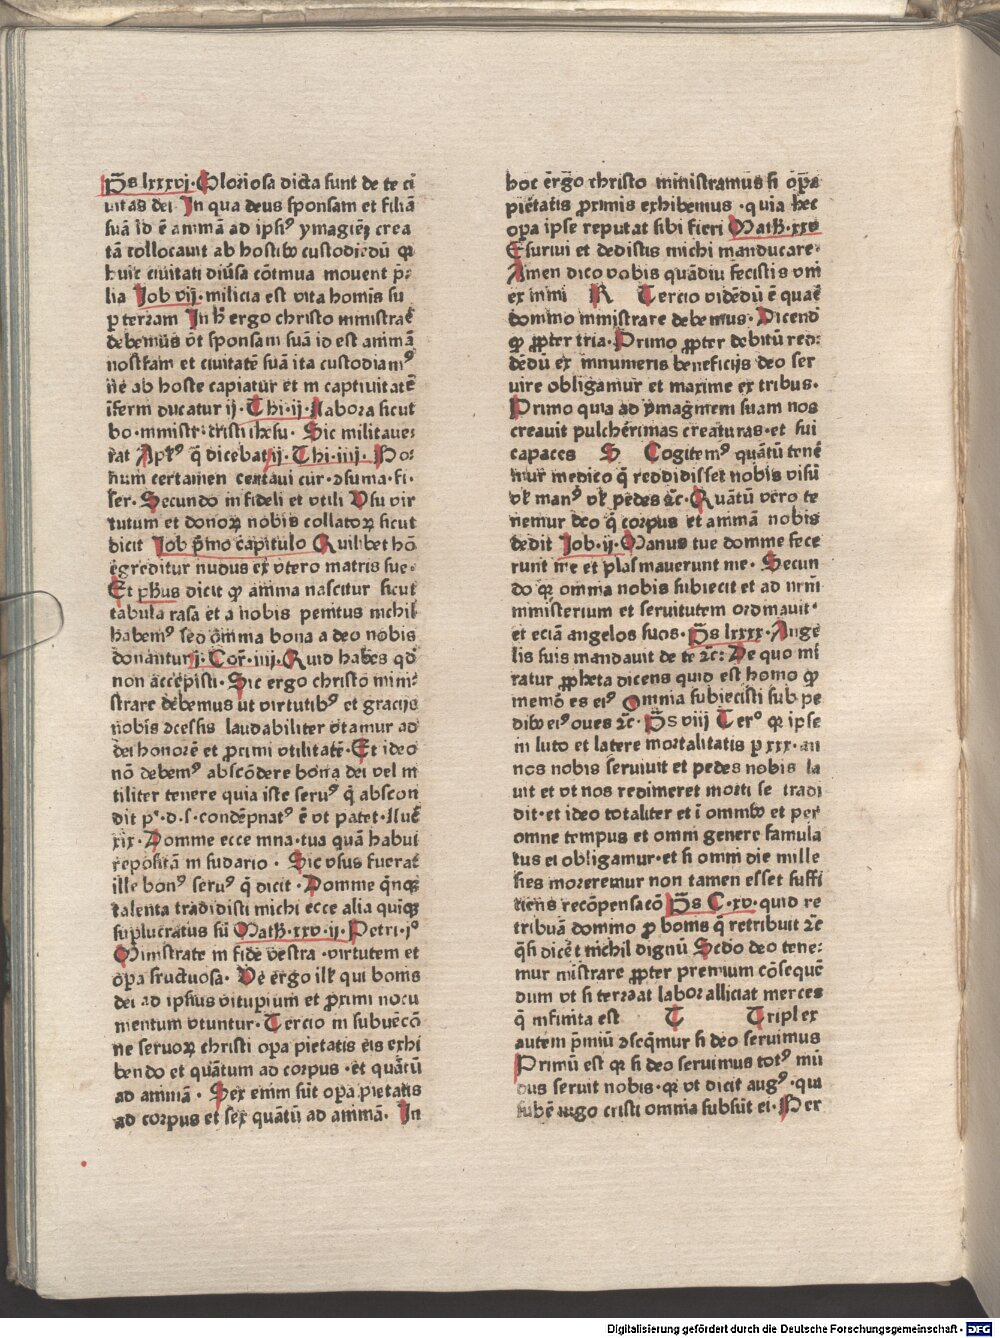 p̄s lxxxvi. Gloriosa dicta sunt de te ci
uitas dei In qua deus sponsam et filiā
suā id ē animā ad ipsiꝰ ymaginē crea
tā collocauit ab hostibꝰ custodiēdū qꝫ
huic ciuitati diūsa cōtinua mouent p̄e
lia Iob vij. milicia est vita hominis su
ꝑ terram In h̄ ergo christo ministrar̄
debemus vt sponsam suā id est animā
nostram et ciuitatē suā ita custodiamꝰ
ne ab hoste capiatur et in captiuitatē
īferni ducatur ij. Thi. ij. Labora sicut
bo. ministr. cristi ihesu. Sic militaue
rat Apl̄ꝰ q̄ dicebat ij. Thi. iiij. Bo
num certamen certaui cur. ꝯsuma. fi.
ser. Secundo in fideli et vtili vsu vir
tutum et donoꝝ nobis collatoꝝ sicut
dicit Iob p̄mo capitulo Quilibet hō
egreditur nudus ex vtero matris sue.
Et ph̄us dicit ꝙ anima nascitur sicut
tabula rasa et a nobis penitus nichil
habemꝰ sed omnia bona a deo nobis
donantur i. Cor. iiij. Quid habes qd̄
non accepisti. Sic ergo christo mini
strare debemus ut virtutibꝰ et gracijs
nobis ꝯcessis laudabiliter vtamur ad
dei honorē et ꝓximi vtilitatē. Et ideo
nō debemꝰ abscōdere bona dei vel in
vtiliter tenere quia iste seruꝰ q̄ abscon
dit pe. d. s. condēpnatꝰ ē vt patet. Luc̄
xix. Domine ecce mna tua quā habui
repositā in sudario. Sic vsus fuerat
ille bonꝰ seruꝰ q̄ dicit. Domine q̄nqꝫ
talenta tradidisti michi ecce alia quinqꝫ
suplucratus sū Math. xxv. ij. Petri. iº
Ministrate in fide vestra virtutem et
opa fructuosa. Ve ergo ill' qui bonis
dei ad ipsius vitupium et ꝓximi nocu
mentum vtuntur. Tercio in subuēcō
ne seruoꝝ christi opa pietatis eis exhi
bendo et quātum ad corpus et quātū
ad animā. Sex enim sūt opa pietatis
ad corpus et sex quātū ad animā. In
hoc ergo christo ministramus si opa
pietatis ꝓximis exhibemus quia hec
opa ipse reputat sibi fieri Math. xxv
Esuriui et dedistis michi manducare.
Amen dico vobis quādiu fecistis vni
ex mini R Tercio vidēdū ē quar̄
domino ministrare debemus. Dicend̄
ꝙ ꝓpter tria. Primo ꝓpter debitū red
dēdū ex innumeris beneficijs deo ser
uire obligamur et maxime ex tribus.
Primo quia ad ymaginem suam nos
creauit pulcherrimas creaturas et sui
capaces S Cogitemꝰ quātū tene
mur medico q̄ reddidisset nobis visū
vl' manꝰ vl' pedes ꝛc. Quātū vero te
nemur deo q̄ corpus et animā nobis
dedit Iob. ij. Manus tue domine fece
runt me et plasmauerunt me. Secun
do qꝫ omnia nobis subiecit et ad nrm̄
ministerium et seruitutem ordinauit.
et eciā angelos suos. p̄s lxxxx. Ange
lis suis mandauit de te ꝛc. De quo mi
ratur ꝓpheta dicens quid est homo ꝙ
memō es eiꝰ Omnia subiecisti sub pe
dibꝰ eiꝰ oues ꝛc. p̄s viij Terº qꝫ ipse
in luto et latere mortalitatis p xxx. an
nos nobis seruiuit et pedes nobis la
uit et vt nos redimeret morti se tradi
dit. et ideo totaliter et ī omnibꝰ et per
omne tempus et omni genere famula
tus ei obligamur. et si omni die mille
sies moreremur non tamen esset suffi
ciens recōpensacō p̄s C. xv. quid re
tribuā domino ꝓ bonis q̄ retribuit ꝛc
q̄si dicēt nichil dignū Secdo deo tene
mur mistrare ꝓpter premium cōsequē
dum vt si terreat labor alliciat merces
q̄ infinita est T Triplex
autem p̄miū ꝯseq̄mur si deo seruimus
Primū est qꝫ si deo seruimus totꝰ mū
dus seruit nobis. qꝫ vt dicit augꝰ. qui
iugo cristi omnia subsūt ei. Per